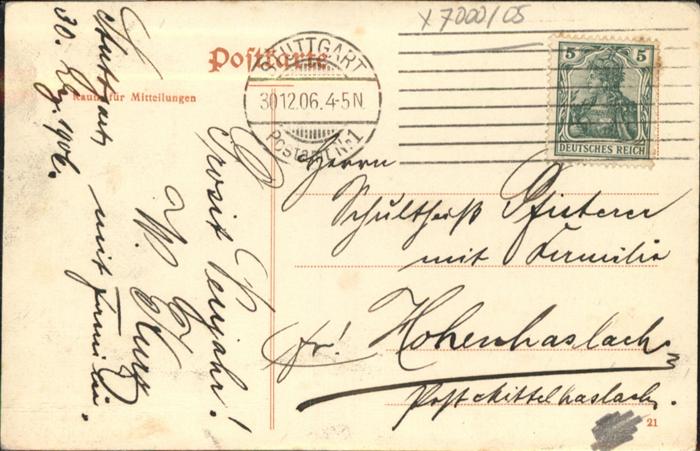 x 7000/05
Postkarte
Raum für Mitteilungen
STUTTGART
30.12.06.4-5N.
Postamt No1
5 5
DEUTSCHES REICH
Stuttgart,
30. Dez. 1906.
Prosit Neujahr!
W. Kurz
mit Familie.
Herrn
Schultheiß Pfisterer
mit Familie
in Hohenhaslach
Post Mittelhaslach.
21